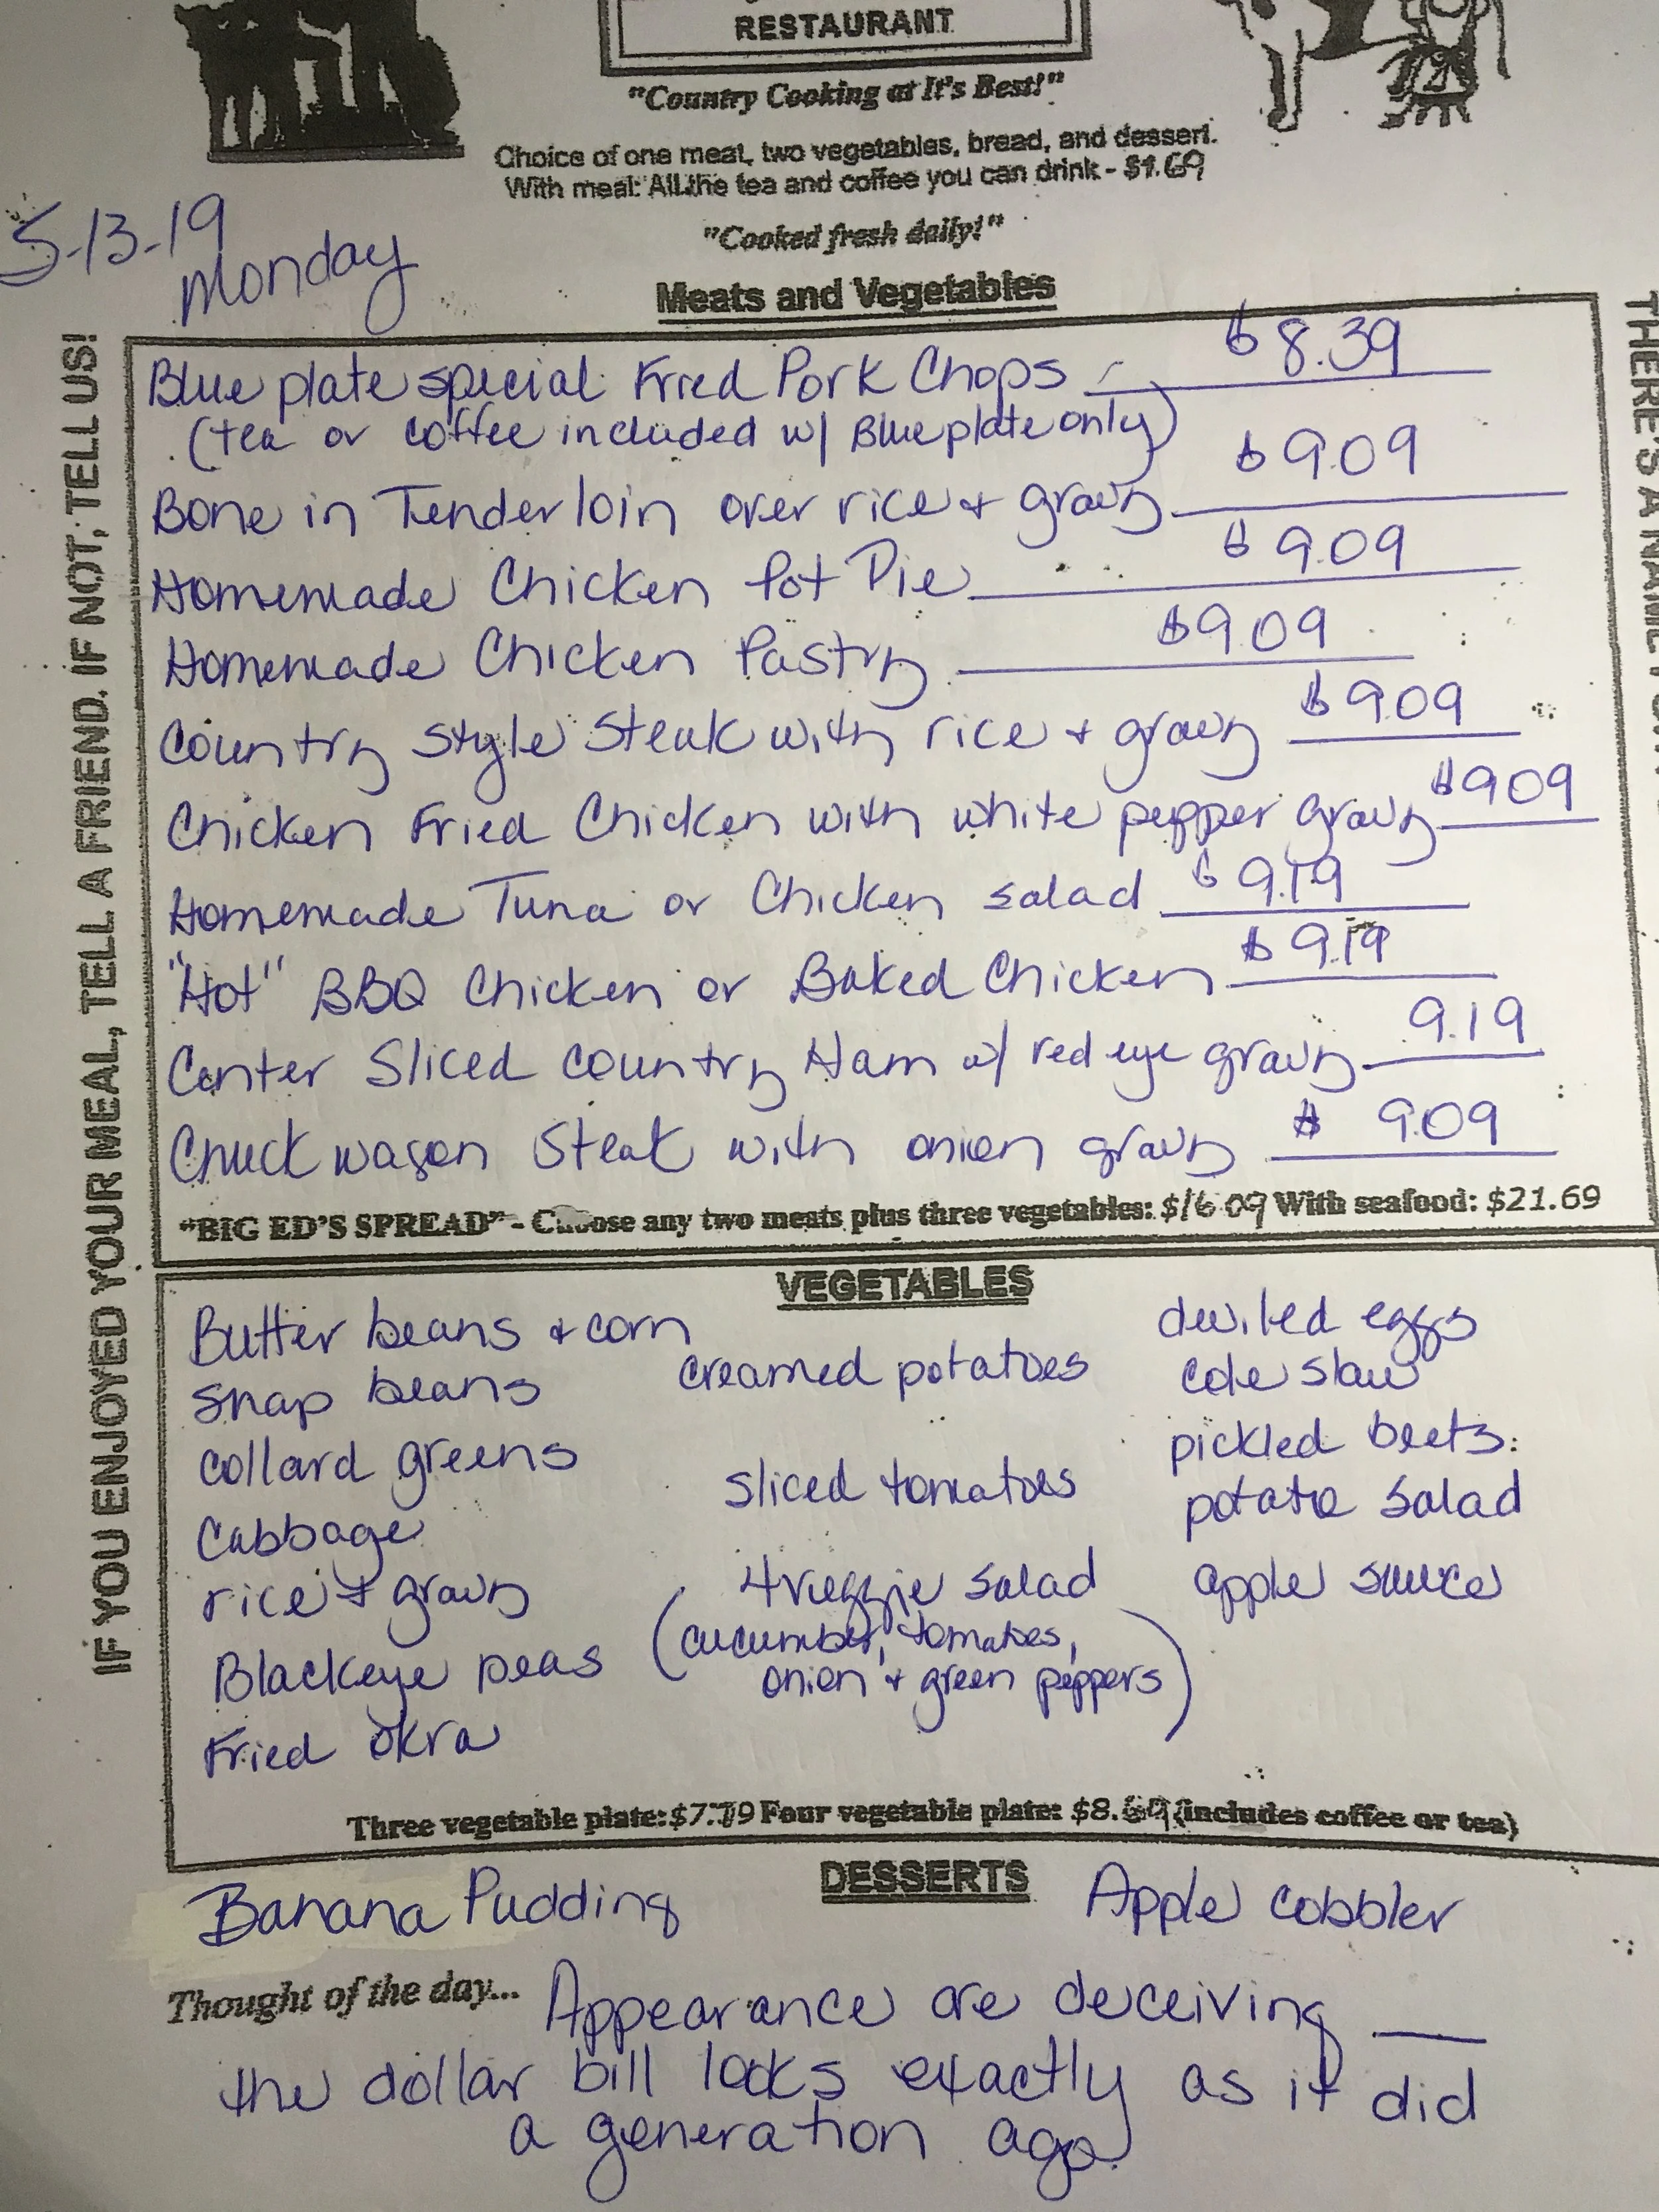 RESTAURANT
"Country Cooking at It's Best!"
Choice of one meat, two vegetables, bread, and dessert.
With meal: All the tea and coffee you can drink - $1.69
"Cooked fresh daily!"
5-13-19
Monday
Meats and Vegetables
Blue plate special Fried Pork Chops - $8.39
(tea or coffee included w/ Blue plate only)
Bone in Tenderloin over rice + gravy $9.09
Homemade Chicken Pot Pie $9.09
Homemade Chicken Pastry $9.09
Country Style Steak with rice + gravy $9.09
Chicken Fried Chicken with white pepper gravy $9.09
Homemade Tuna or Chicken salad $9.19
"Hot" BBQ Chicken or Baked Chicken $9.19
Center Sliced Country Ham w/ red eye gravy 9.19
Chuck wagon Steak with onion gravy $9.09
"BIG ED'S SPREAD" - Choose any two meats plus three vegetables: $16.09 With seafood: $21.69
IF YOU ENJOYED YOUR MEAL, TELL A FRIEND. IF NOT, TELL US!
THERE'S A NAME
VEGETABLES
Butter beans + corn
snap beans
collard greens
Cabbage
rice + gravy
Blackeye peas
Fried okra
creamed potatoes
sliced tomatoes
4 veggie salad
(cucumber, tomatoes,
onion + green peppers)
deviled eggs
cole slaw
pickled beets
potato salad
apple sauce
Three vegetable plate: $7.79 Four vegetable plate: $8.69 (includes coffee or tea)
DESSERTS
Banana Pudding
Apple Cobbler
Thought of the day... Appearance are deceiving __
the dollar bill looks exactly as it did
a generation ago.